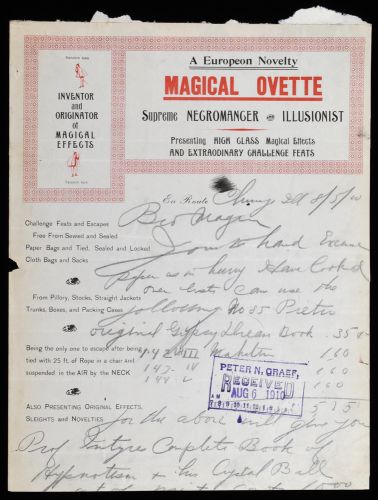 A Europeon Novelty
MAGICAL OVETTE
Supreme NEGROMANGER and ILLUSIONIST
Presenting HIGH CLASS Magical Effects
AND EXTRAODINARY CHALLENGE FEATS
INVENTOR
and
ORIGINATOR
of
MAGICAL
EFFECTS
En Route
8/5/10
Challenge Feats and Escapes
Free From Sewed and Sealed
Paper Bags and Tied, Sealed and Locked
Cloth Bags and Sacks
Yours to hand Excuse
paper as in hurry I have looked
over list can use the
From Pillory, Stocks, Straight Jackets
Trunks, Boxes, and Packing Cases
following No 35
original Gypsy Dream Book . 35
Being the only one to escape after being
tied with 25 ft. of Rope in a chair and
suspended in the AIR by the NECK
142 III 1 60
143 IV 1 60
144 V 1 60
PETER N. GRAEF,
RECEIVED
AUG 6 1910
AM PM
7 8 9 10 11 12 1 2 3 4 5 6
5 15
Also Presenting Original Effects,
Sleights and Novelties
for the above will give you
Prof Complete Book of
Hypnotism + Crystal Ball